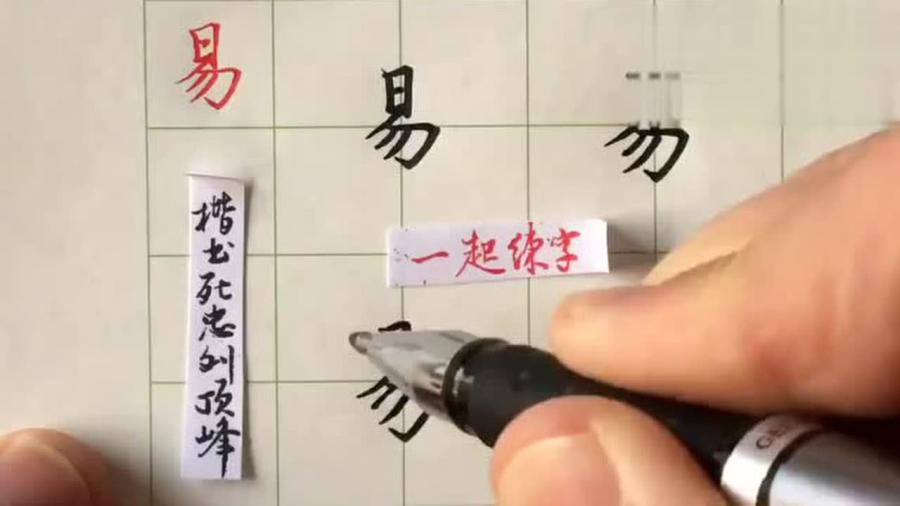 易
易
一起练字
楷书死忠刘顶峰
易